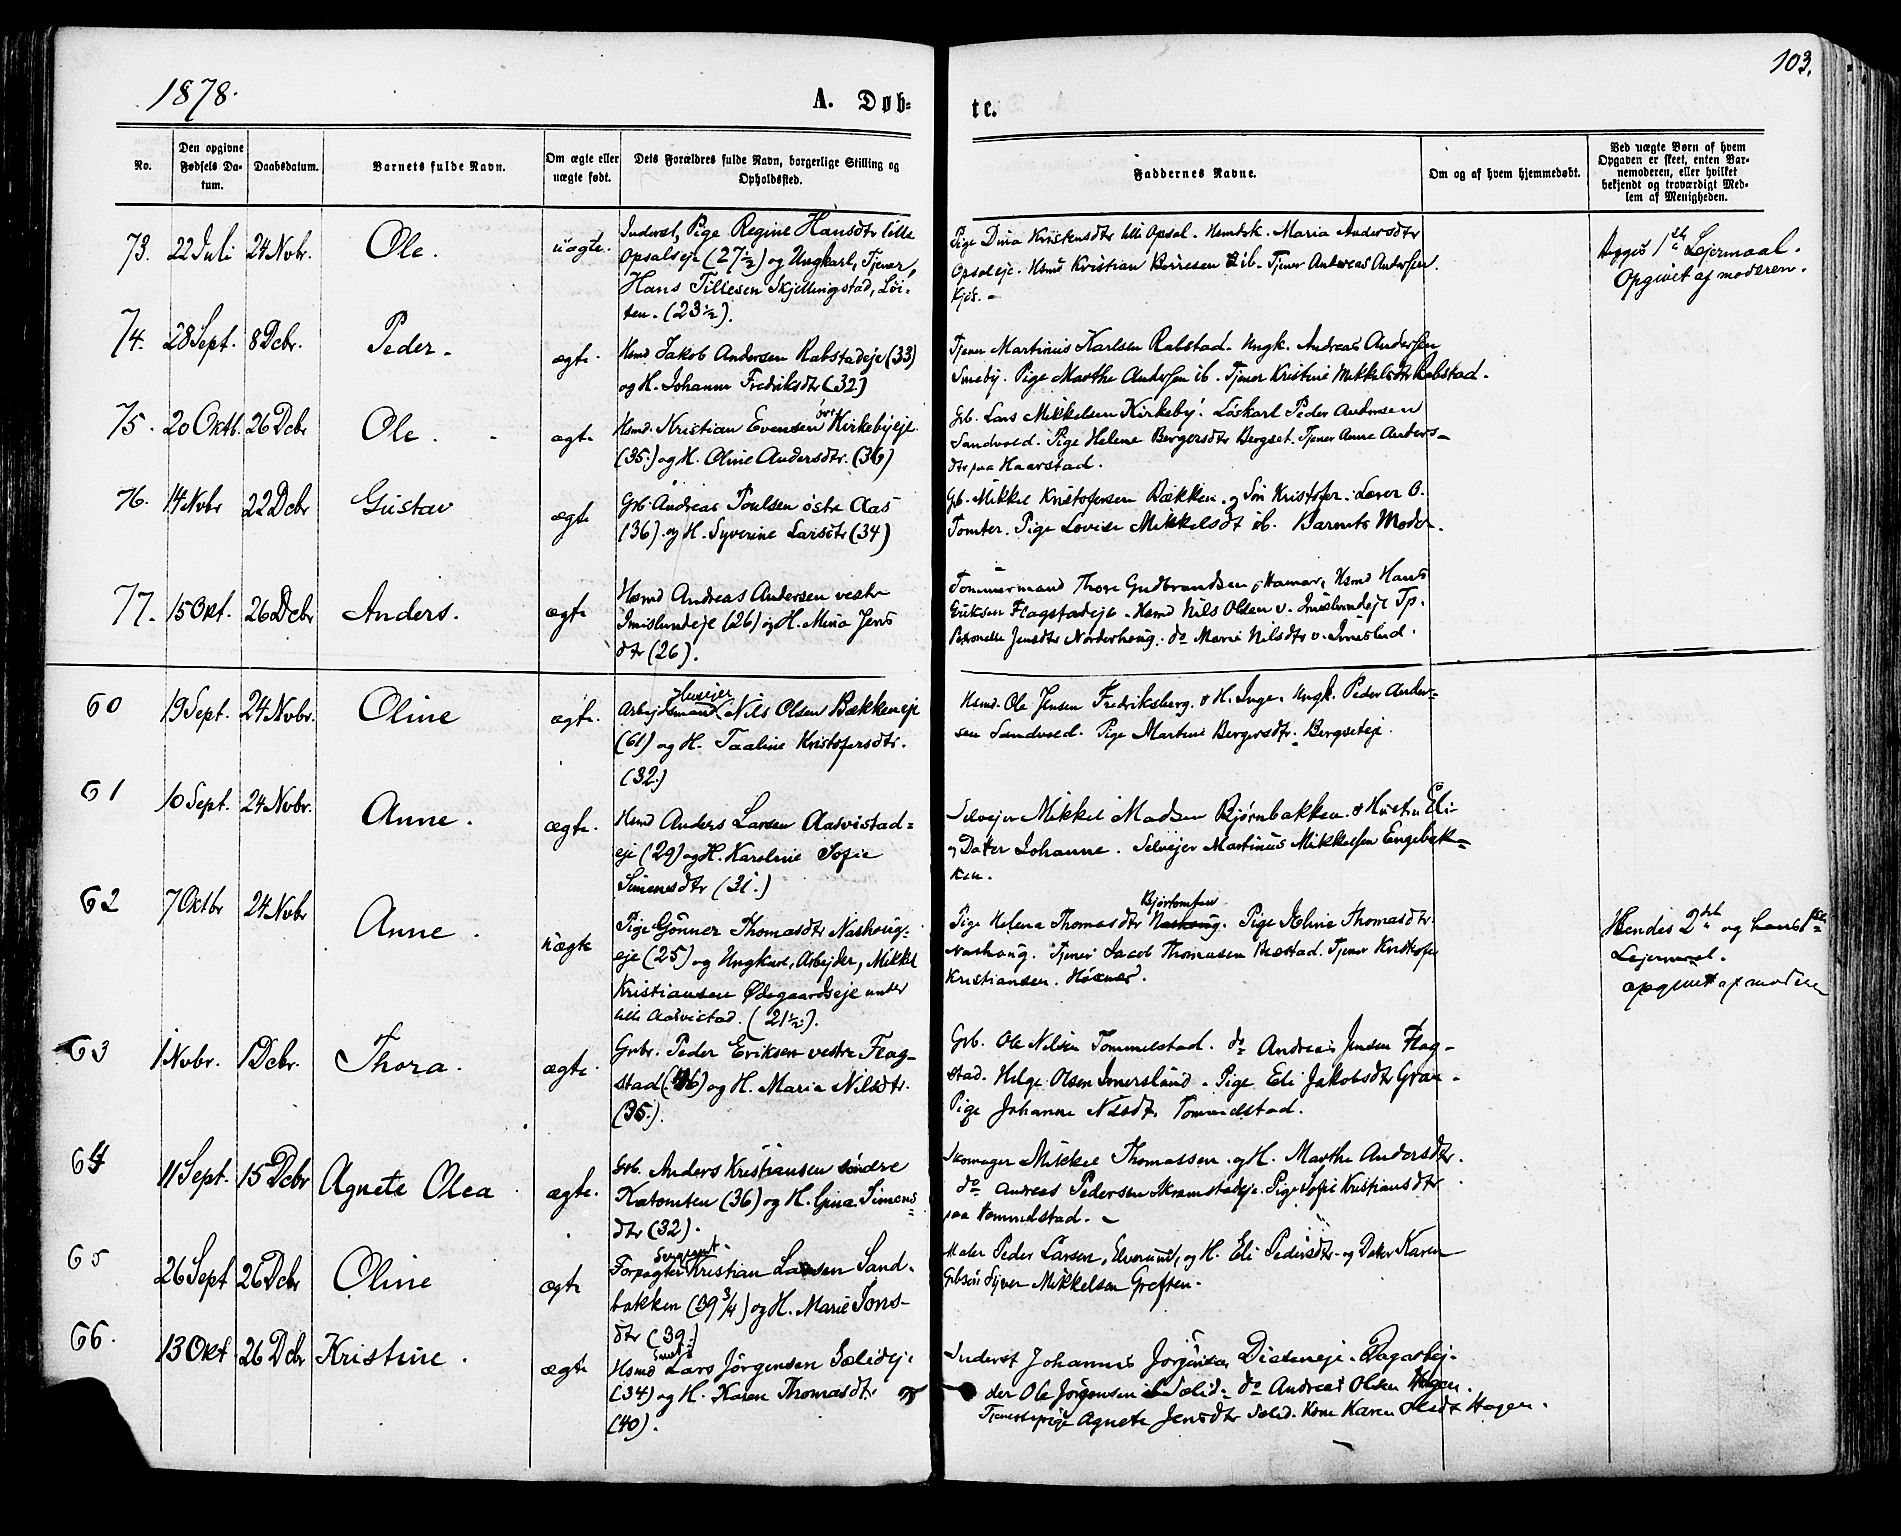 103.
1878.
A. Døb-
te.
No.
Den opgivne Fødsels Da-tum.
Daabsdatum.
Barnets fulde Navn.
Om ægte eller uægte født.
Dets Forældres fulde Navn, borgerlige Stilling og Opholdssted.
Faddernes Navne.
Om og af hvem hjemmedøbt.
Ved uægte Børn af hvem Opgaven er skeet, enten Bar-nemoderen, eller hvilket bekjendt og troværdigt Med-lem af Menigheden.
73. 22 Juli 24 Novbr. Ole. uægte.
Inderst, Pige Regine Hansdtr lille
Opsalseje (27½) og Ungkarl, Tjener,
Hans Tillesen Skjellingstad, Løi-
ten. (23½).
Pige Dina Kristensdtr lille Opsal. Maria Andersdtr
Opsaleje. Hsmd Kristian Børresen ib. Tjener Andreas Andersen
Kjøs.
Begges 1ste Lejermaal.
Opgivet af moderen.
74. 28 Sept. 8 Dcbr. Peder. ægte.
Hsmd Jakob Andersen Rabstadeje (33)
og H. Johanne Fredriksdtr (32)
Tjener Martinius Karlsen Rabstad. Ungk. Andreas Andersen
Smeby. Pige Marthe Andersen ib. Tjener Kristine Mikkelsdtr Rabstad.
75. 20 Oktb. 26 Dcbr Ole. ægte
Hsmd. Kristian Evensen Kirkebyeje
(35.) og H. Oline Andersdtr. (36)
Grb. Lars Mikkelsen Kirkeby. Løskarl Peder Andersen
Sandvold. Pige Helene Bergersdtr Bergset. Tjener Anne Anders-
dtr paa Haarstad.
76. 14 Novbr 22 Dcbr Gustav ægte
Grb. Andreas Poulsen østre Aas
(36). og H. Syverine Larsdtr (34)
Grb. Mikkel Kristofersen Bækken og Søn Kristofer. Lærer O.
Tomter. Pige Lovise Mikkelsdt ib. Barnets Moder.
77. 15 Okt. 26 Dcbr Anders. ægte
Hsmd Andreas Andersen vestre
Imislundeje (26) og H. Mina Jens
dtr (26).
Tømmermand Thore Gudbrandsen, Hamar, Hsmd Hans
Eriksen Flagstadeje. Hsmd Nils Olsen v. Imislundeje Tp.
Petronelle Jensdtr Norderhoug. do Marie Nilsdtr v. Imislud.
60 19 Sept. 24 Novbr. Oline ægte.
Husejer
Arbejdsmand Nils Olsen Bækkeneje
(61) og H. Taaline Kristofersdtr.
(32.)
Hsmd. Ole Jensen Fredriksberg. & H. Inge. Ungk. Peder Ander-
sen Sandvold. Pige Martine Bergersdtr. Bergseteje.
61 10 Sept. 24 Novbr. Anne. ægte.
Hsmd Anders Larsen Aasvistad-
eje (29) og H. Karoline Sofie
Simensdtr (31.)
Selvejer Mikkel Madsen Bjørnbakken. & Hustru Eli
og Datter Johanne. Selvejer Martinus Mikkelsen Engebæk-
ken.
62 7 Oktbr 24 Novbr Anne. uægte
Pige Gönner Thomasdtr Nashoug-
eje (25) og Ungkarl, Arbejder, Mikkel
Kristiansen Ødegaardseje under
lille Aasvistad. (21½).
Pige Helena Thomasdtr Nashoug. Pige Thomasdtr.
Nashoug. Tjener Jacob Thomasen Tjener Kristofer
Kristiansen.
Hendes 2det og hans 1ste
Lejermaal.
opgivet af moderen
63 1 Novbr. 1 Dcbr. Thora. ægte.
Grbr. Peder Eriksen vestre Flag-
stad (36) og H. Maria Nilsdtr.
(35.).
Grb. Ole Nilsen Tommelstad. do Andreas Jensen Flag-
stad. Helge Olsen Imerslund. Pige Eli Jakobsdtr Gran.
Pige Johanne Nilsdtr. Tommelstad.
64 11 Sept. 15 Dcbr Agnete Olea ægte.
Grb. Anders Kristiansen søndre
Kætomten (36) og H. Gina Simens
dtr (32).
Skomager Mikkel Thomassen. og H. Marthe Andersdtr.
do Andreas Pedersen Skramstadeje. Pige Sofie Kristiansdtr
paa Tommelstad.
65 26 Sept 26 Dcbr Oline ægte
Sergeant.
Forpagter Kristian Larsen Sand-
bakken (39¾) og H. Marie Jons-
dtr (39.)
Maler Peder Larsen, Elverum, og H. Eli Pedersdtr. og Dater Karen
Grbsøn Syver Mikkelsen Greften.
66. 13 Okt. 26 Dcbr Kristine. ægte
Hsmd Lars Jörgensen Sælideje
(34) og H. Karen Thomasdtr
(40).
Inderst Johannes Jorgensen Disteneje. Dagarbej-
der Ole Jörgensen Sælid. do Andreas Olsen Hagen.
Tjenestepige Agnete Jensdtr Sælid. Kone Karen Olsdt Hagen.